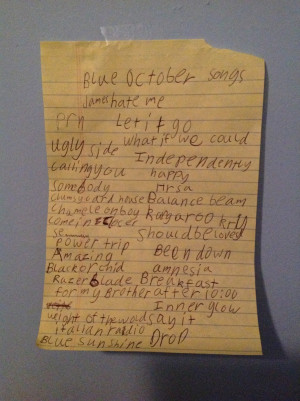 Blue October songs
James hate me
PRN Let it go
Ugly side what if we could
Independently
Calling you happy
Somebody Mrsa
Clumsy card house Balance beam
Chameleon boy Kangaroo cry
Come in closer
Should be loved
Power trip Been down
Amazing
Black orchid amnesia
Razorblade Breakfast
For my Brother after 10:00
Inner glow
weight of the world say it
italian radio
Blue sunshine Drop